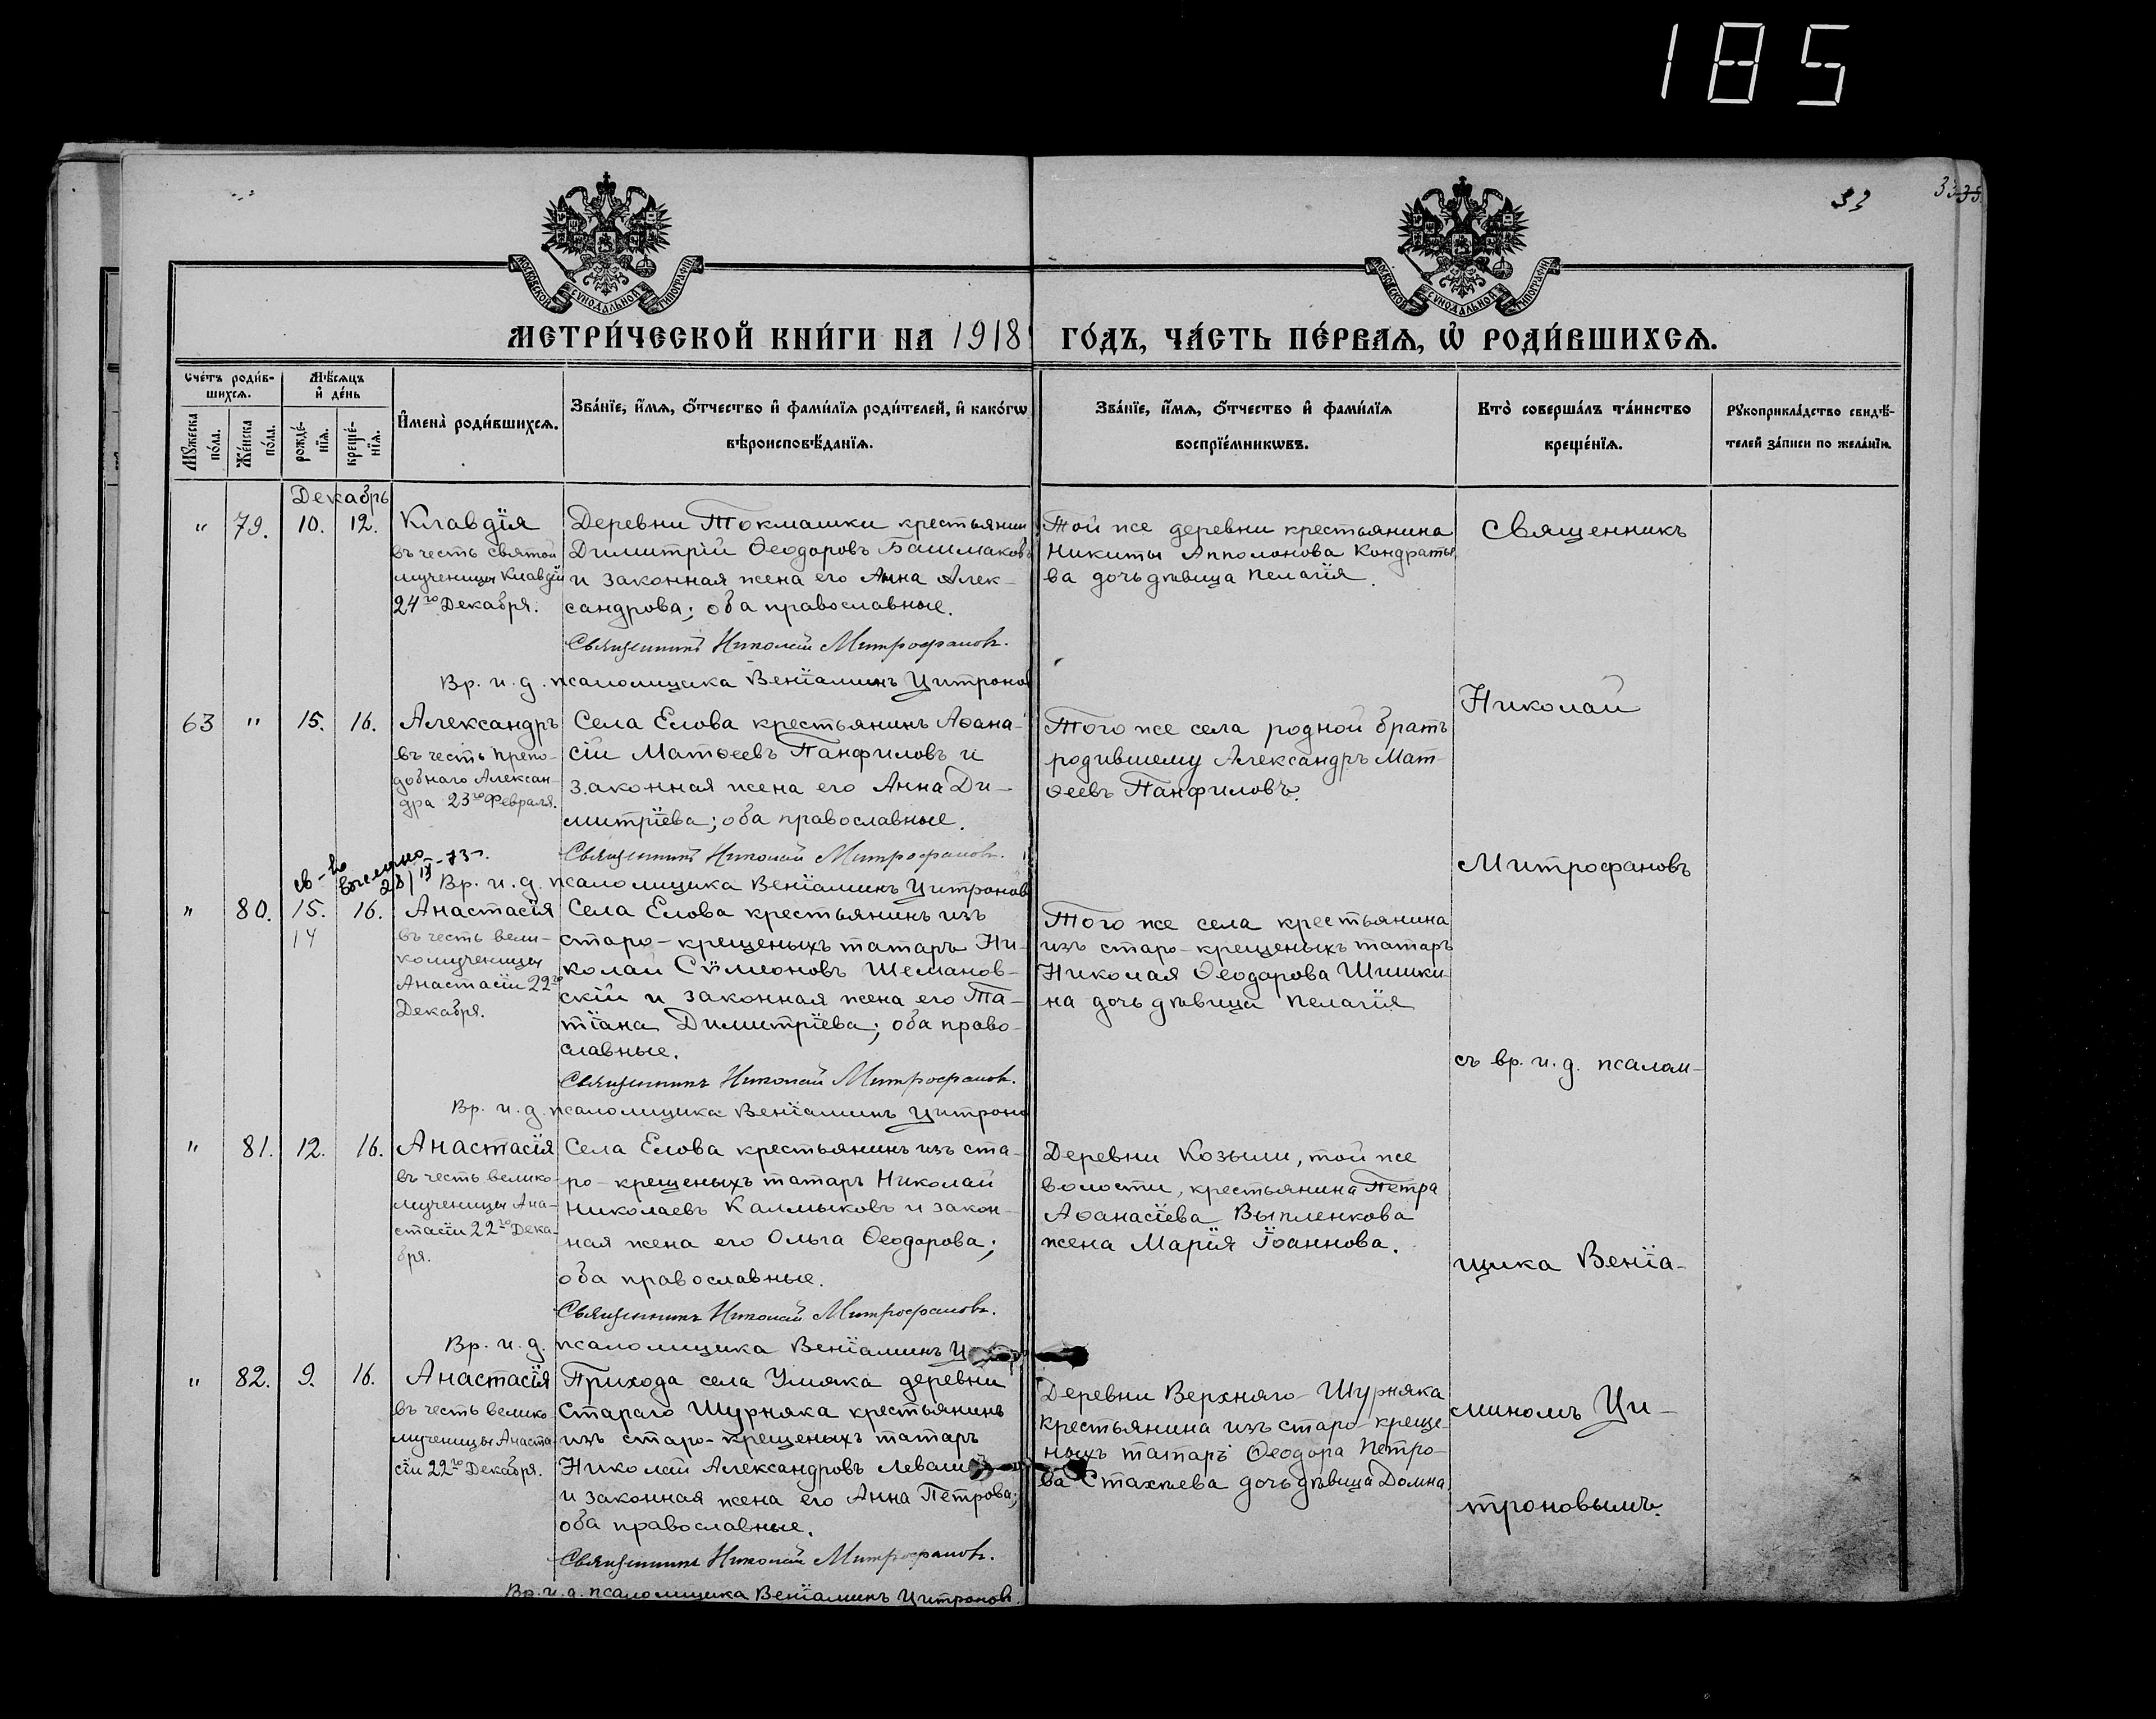 185
33
33 35
МОСКОВСКОЙ СѴНОДАЛЬНОЙ ТИПОГРАФІИ
МОСКОВСКОЙ СѴНОДАЛЬНОЙ ТИПОГРАФІИ
МЕТРИ́ЧЕСКОЙ КНИ́ГИ НА 1918 ГО́ДЪ, ЧА́СТЬ ПЕ́РВАѦ, Ѡ҆ РОДИ́ВШИХСѦ.
Сче́тъ роди́в-
шихсѧ.
Мꙋжеска по́ла.
Же́нска по́ла.
Мѣ́сѧцъ
и҆ де́нь
рожде́-
нїѧ.
креще́-
нїѧ.
И҆мена̀ роди́вшихсѧ.
Зва́нїе, и҆́мѧ, ѻ҆́тчество и҆ фами́лїѧ роди́телей, и҆ како́гѡ
вѣроисповѣ́данїѧ.
Зва́нїе, и҆́мѧ, ѻ҆́тчество и҆ фами́лїѧ
воспрїе́мникѡвъ.
Кто̀ соверша́лъ та́инство
креще́нїѧ.
Рꙋкоприкла́дство свидѣ́-
телей за́писи по жела́нїю.
Декабрь
" 79. 10. 12. Клавдія
въ честь святой
мученицы Клавдіи
24го Декабря.
Деревни Токмашки крестьянин
Димитрій Ѳеодоровъ Башмаковъ
и законная жена его Анна Алек-
сандрова; оба православные.
Священникъ Николай Митрофановъ.
Вр. и. д. псаломщика Веніаминъ Цитронов
Той же деревни крестьянина
Никиты Апполонова Кондратье
ва дочь дѣвица Пелагія.
Священникъ
63 " 15. 16. Александръ
въ честь препо-
добнаго Алексан-
дра 23го Февраля.
Села Елова крестьянинъ Аѳана-
сій Матѳеевъ Панфиловъ и
законная жена его Анна Ди-
митріева; оба православные.
Священникъ Николай Митрофановъ.
Вр. и. д. псаломщика Веніаминъ Цитронов
Того же села родной братъ
родившему Александръ Мат-
ѳеевъ Панфиловъ.
Николай
Митрофановъ
св-во
28/IX-73г.
" 80. 15. 16. Анастасія
14
въ честь вели-
комученицы
Анастасіи 22го
Декабря.
Села Елова крестьянинъ изъ
старо-крещеныхъ татаръ Ни-
колай Сѵмеоновъ Шеманов-
скій и законная жена его Та-
тіана Димитріева; оба право-
славные.
Священникъ Николай Митрофановъ.
Вр. и. д. псаломщика Веніаминъ Цитроно
Того же села крестьянина
изъ старо-крещеныхъ татаръ
Николая Ѳеодорова Шишки-
на дочь дѣвица Пелагія
съ вр. и. д. псалом-
" 81. 12. 16. Анастасія
въ честь велико-
мученицы Ана-
стасіи 22го Дека-
бря.
Села Елова крестьянинъ изъ ста-
ро-крещеныхъ татаръ Николай
Николаевъ Калмыковъ и закон-
ная жена его Ольга Ѳеодорова;
оба православные.
Священникъ Николай Митрофановъ.
Вр. и. д. псаломщика Веніаминъ
Деревни Козыли, той же
волости, крестьянина Петра
Аѳанасіева Выпленкова
жена Марія Іоаннова.
щика Веніа-
" 82. 9. 16. Анастасія
въ честь велико
мученицы Анаста-
сіи 22го Декабря.
Прихода села Умяка деревни
Стараго Шурняка крестьянинъ
изъ старо-крещеныхъ татаръ
Николай Александровъ
и законная жена его Анна Петрова;
оба православные.
Священникъ Николай Митрофановъ.
Вр. и. д. псаломщика Веніаминъ Цитроновъ
Деревни Верхняго-Шурняка
крестьянина изъ старо-креще-
ныхъ татаръ Ѳеодора Петро-
ва Стахѣева дочь дѣвица Домна.
миномъ Ци-
троновымъ.